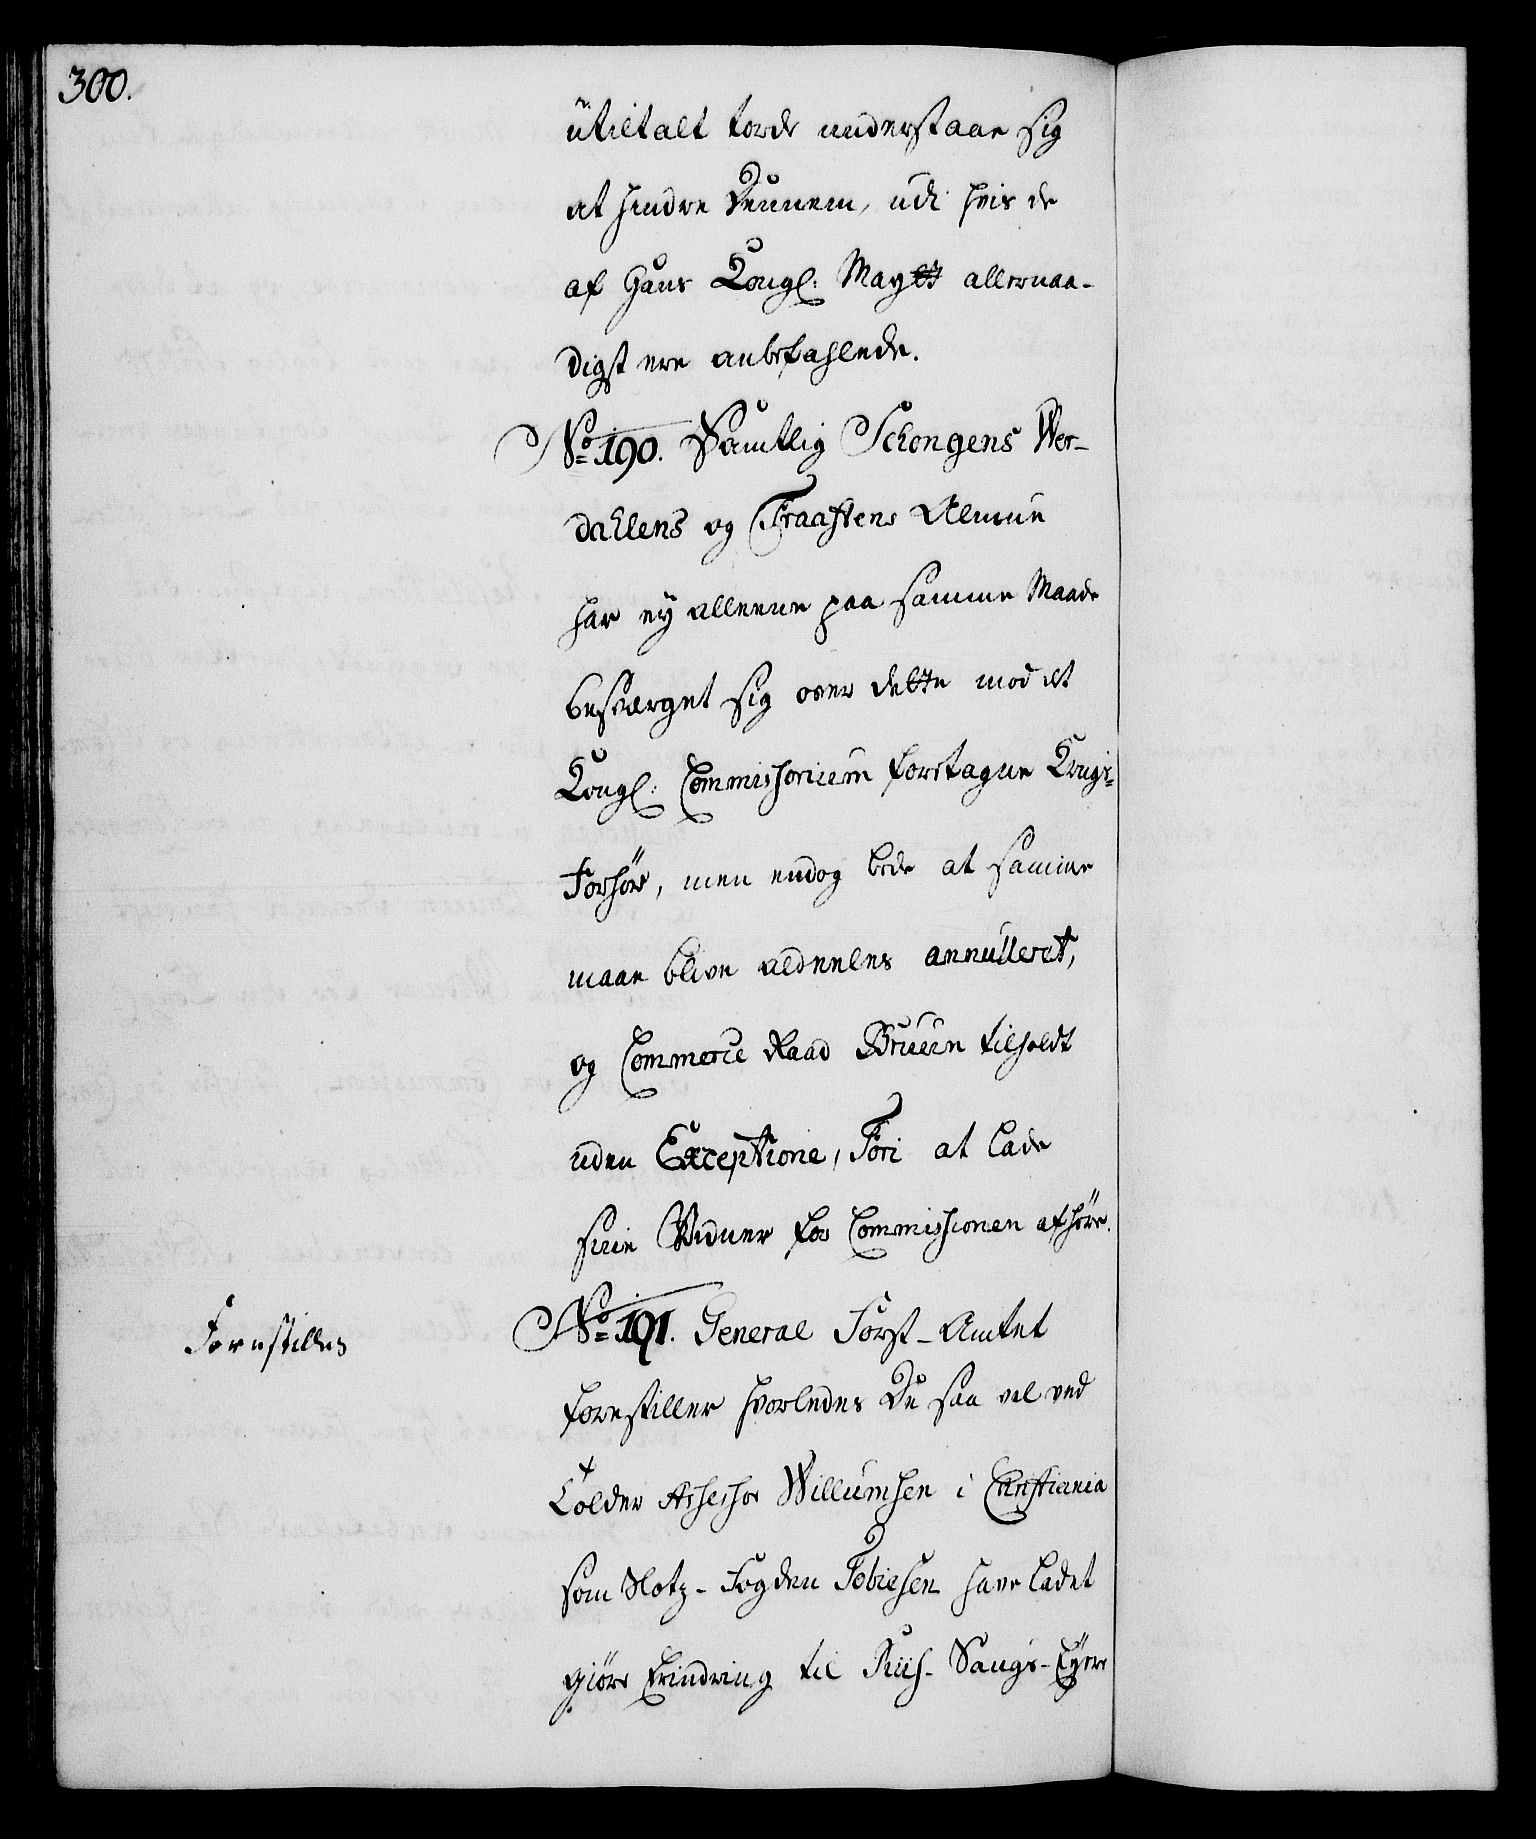 300.
utiltalt torde understaae sig
at hindre dennem, udi hvis de
af Hans Kongl: Maytt allernaa-
digst ere anbefahlede.
No 190. Samtlig Schongens Wer-
dahlens og Fraastens Almue
har ey alleene paa samme Maade
besværget sig over dette mod et
Kongl: Commissorium foretagne Krigs-
Forhör, men endog bede at samme
maae blive aldeeles annulleret,
og Commerce Raad Bruun tilholdt
uden Exceptione, Fori at lade
sine Vidner for Commissionen afhöre.
Forestilles
No 191. General Forst-Amtet
forestiller hvorledes De saa vel ved
Tolder Assessor Willumsen i Christiania
som Slotz-Fogden Tobiesen have ladet
giöre Erindring til Saugs-Eyere